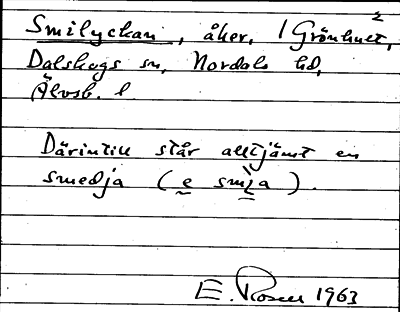 Smilyckan, åker, 1 Grönhult²,
Dalskogs sn, Nordals hd,
Älvsb. l.
Därintill står alltjämt en
smedja (e smìa).
E. Rosell 1963